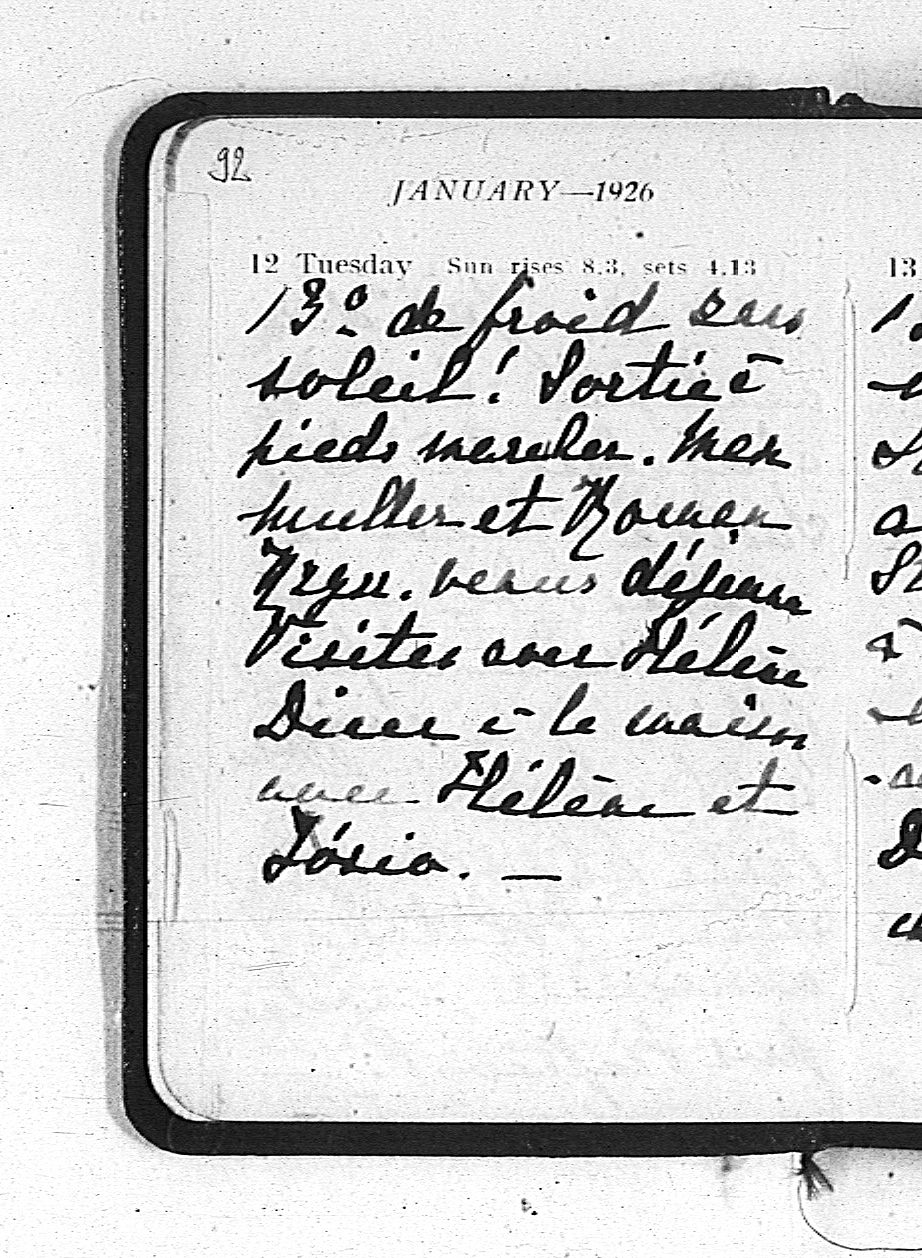 92
JANUARY—1926
12 Tuesday Sun rises 8.3, sets 4.13
13
13º de froid sans
soleil! Sortie à
pieds marcher. Max
Muller et Roman
venus déjeuner
Visites avec Hélène
Diner à la maison
avec Hélène et
Józio. —